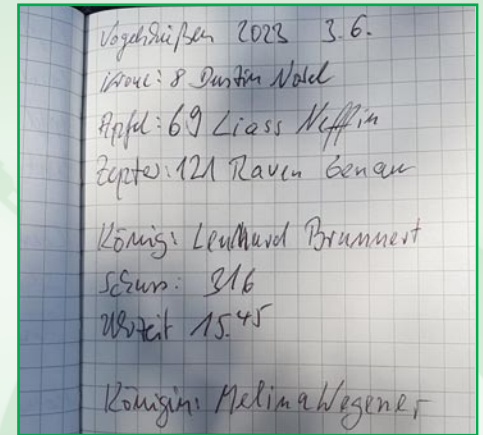 Vogelschießen 2023 3.6.
Krone: 8 Dustin
Apfel: 69 Liass Nefflin
Zepter: 121 Raven Genau
König: Lenhard Brummert
Schuss: 316
Uhrzeit 15.45
Königin: Melina Wegener